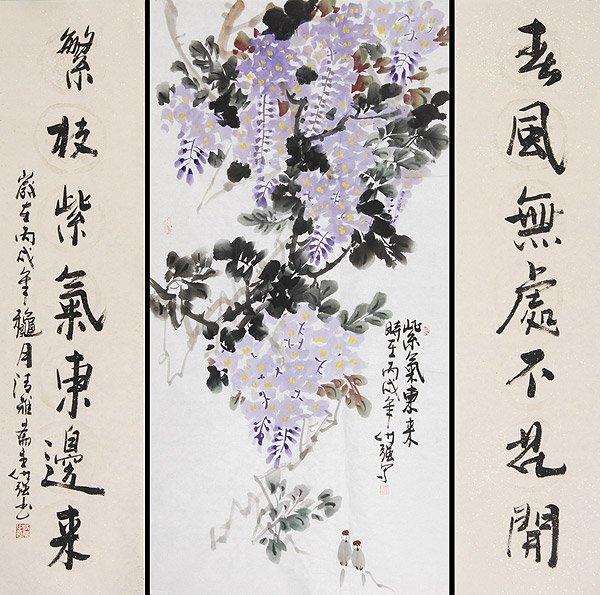 春風無處不花開
紫氣東来
時在丙戌年
繁枝紫氣東邊来
歲在丙戌年龝月清雅